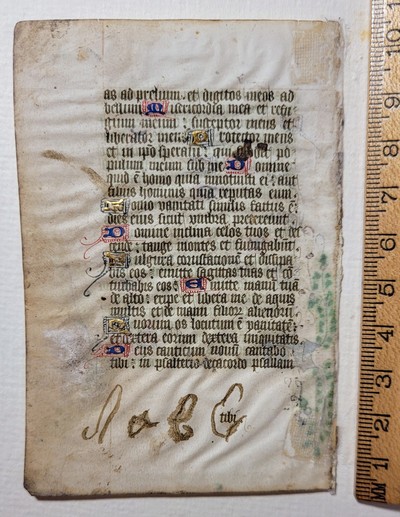 as ad prelium: et digitos meos ad
bellum Misericordia mea et refu
gium meum: susceptor meus et
liberator meus Protector meus
et in ipo speraui: qui subdit po
pulum meum sub me Domine
quid e homo quia innotuisti ei: aut
filius hominis quia reputas eum
Homo vanitati similis factus e:
dies eius sicut umbra pretereunt
Domine inclina celos tuos et des
cende: tange montes et fumigabunt
Fulgura coruscationem et dissipa
bis eos: emitte sagittas tuas et co
turbabis eos Emitte manum tua
de alto: eripe et libera me de aquis
multis et de manu filiorum alienorum
Quorum os locutum e vanitate:
et dextera eorum dextera iniquitatis
Deus canticum nouum cantabo
tibi: in psalterio decacordo psallam
tibi
10
9
8
7
6
5
4
3
2
MM 1